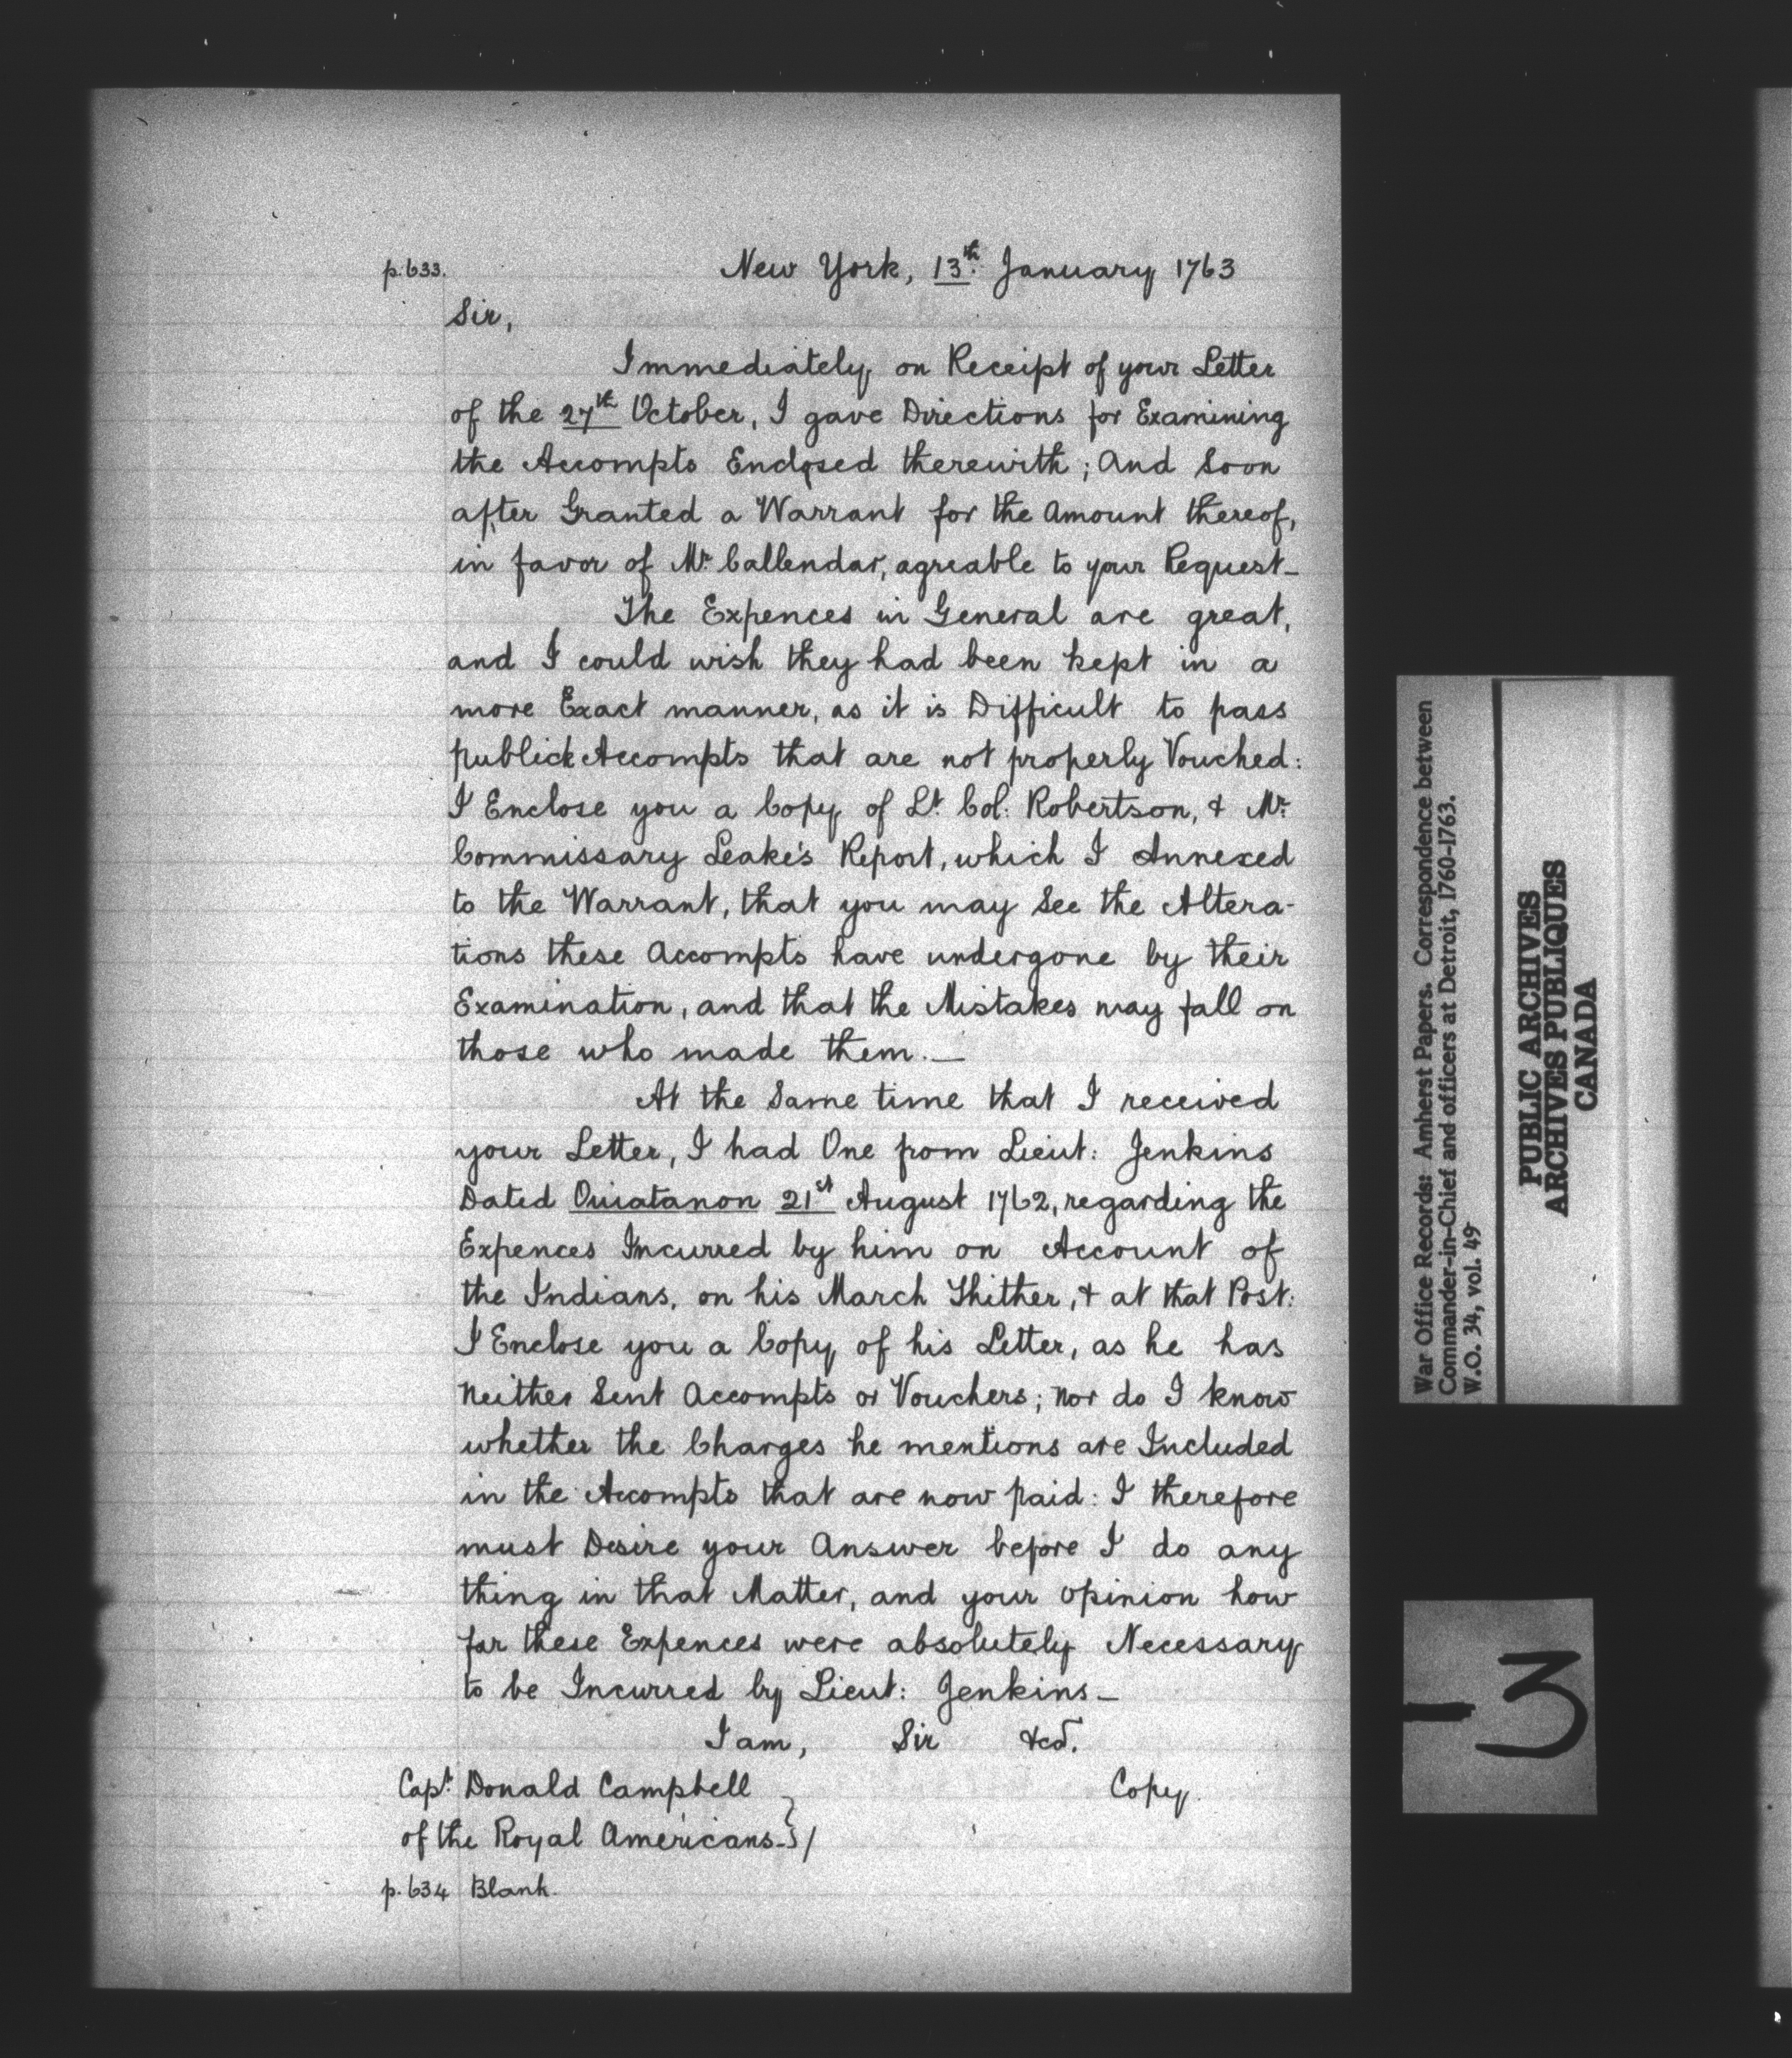 p.633. New York, 13th. January 1763
Sir,
Immediately on Receipt of your Letter
of the 27th October, I gave Directions for Examining
the Accompts Enclosed therewith; And Soon
after Granted a Warrant for the Amount thereof,
in favor of Mr. Callendar, agreable to your Request_
The Expences in General are great,
and I could wish they had been kept in a
more Exact manner, as it is Difficult to pass
publick Accompts that are not properly Vouched:
I Enclose you a Copy of Lt. Col: Robertson, & Mr.
Commissary Leake's Report, which I Annexed
to the Warrant, that you may See the Altera-
tions these Accompts have undergone by their
Examination, and that the Mistakes may fall on
those who made them._
At the Same time that I received
your Letter, I had One from Lieut: Jenkins
Dated Ouiatanon 21st August 1762, regarding the
Expences Incurred by him on Account of
the Indians, on his March Thither, & at that Post:
I Enclose you a Copy of his Letter, as he has
Neither Sent Accompts or Vouchers; Nor do I know
whether the Charges he mentions are Included
in the Accompts that are now paid: I therefore
must Desire your Answer before I do any
thing in that Matter, and your opinion how
far these Expences were absolutely Necessary
to be Incurred by Lieut: Jenkins_
I am, Sir &ca.
Capt. Donald Campbell Copy.
of the Royal Americans_}/
p.634 Blank.
War Office Records: Amherst Papers. Correspondence between
Commander-in-Chief and officers at Detroit, 1760-1763.
W.O. 34, vol. 49
PUBLIC ARCHIVES
ARCHIVES PUBLIQUES
CANADA
-3